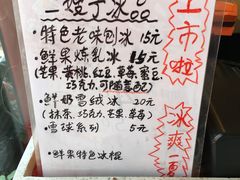 特色老味刨冰 15元
鲜果炼乳冰 15元
(芒果、黄桃、红豆、草莓、蜜豆
巧克力、可随意配)
鲜奶雪绒冰 20元
(抹茶、巧克力、芒果、草莓)
雪球系列 5元
鲜果特色冰棍
上市啦
冰爽一夏